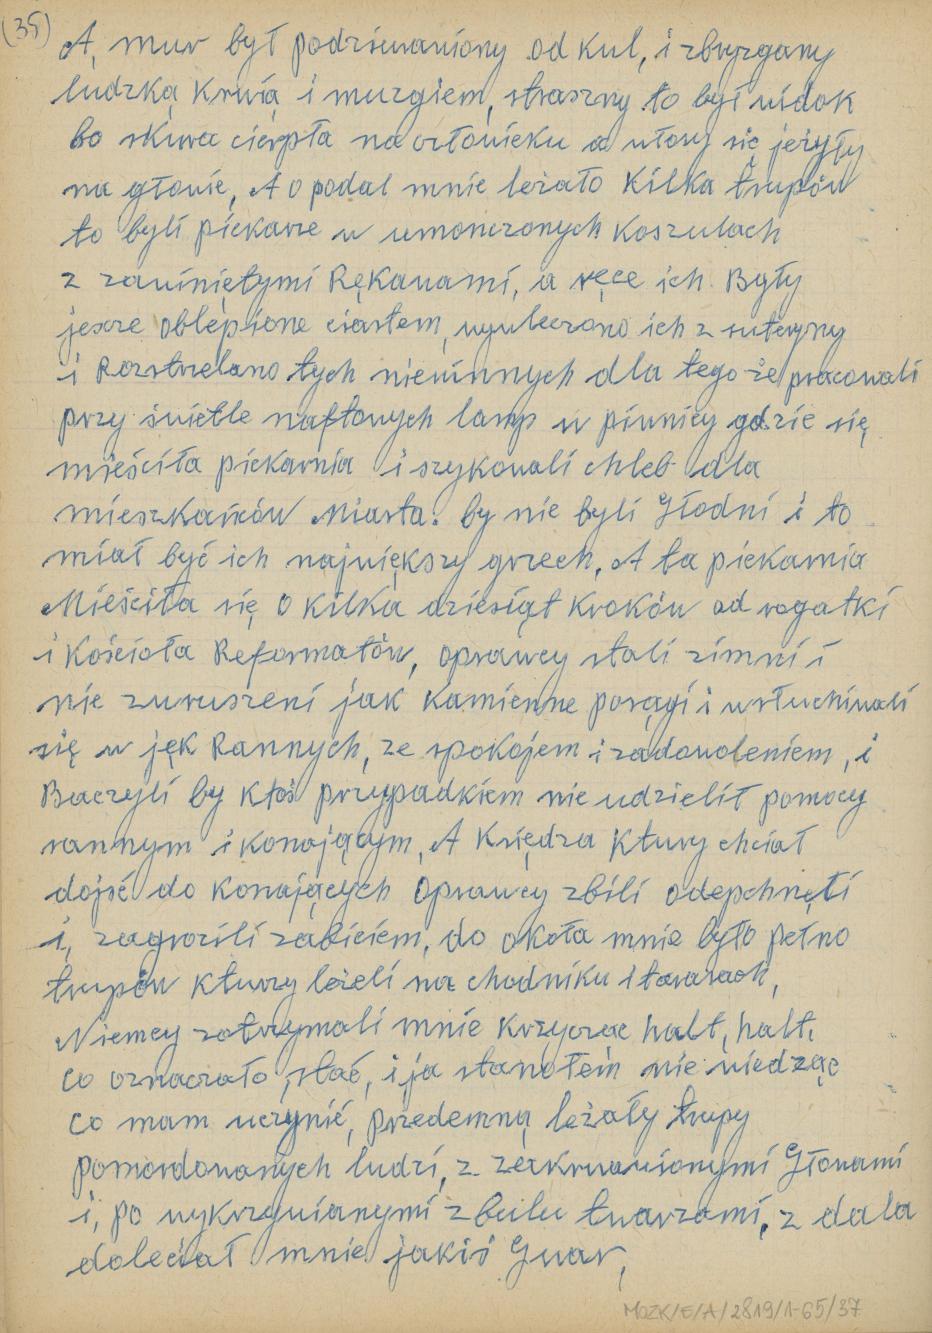 (35)
A, mur był podziurawiony od kul, i zbryzgany
ludzką krwią i muzgiem, straszny to był widok
bo skura cierpła na człowieku a włosy się jeżyły
na głowie, A opodal mnie leżało kilka trupów
to byli piekarze w umonczonych koszulach
z zawiniętymi Rękawami, a ręce ich Były
jescze oblepione ciastem, wywleczono ich z suteryny
i Rozstrzelano tych niewinnych dla tego-że pracowali
przy świetle naftowych lamp w piwnicy gdzie się
mieściła piekarnia i szykowali chleb dla
mieszkańców Miasta. by nie byli Głodni i to
miał być ich największy grzech, A ta piekarnia
Mieściła się o kilka dziesiąt kroków od rogatki
i Kościoła Reformatów, oprawcy stali zimni i
nie zwruszeni jak kamienne posągi i wsłuchiwali
się w jęk Rannych, ze spokojem i zadowoleniem, i
Baczyli by ktoś przypadkiem nie udzielił pomocy
rannym i konającym, A Księdza Ktury chciał
dojść do konających Oprawcy zbili odepchnęli
i, zagrozili zabiciem, do okoła mnie było pełno
trupów kturzy leżeli na chodniku i tarasach,
Niemcy zatrzymali mnie krzycząc halt, halt,
co oznaczało, stać, i ja stanołem nie wiedząc
co mam uczynić, przedemną leżały trupy
pomordowanych ludzi, z zakrwawionymi Głowami
i, po wykrzywianymi z bulu twarzami, z dala
doleciał mnie jakiś Gwar,
MOZK/E/A/2819/1-65/37